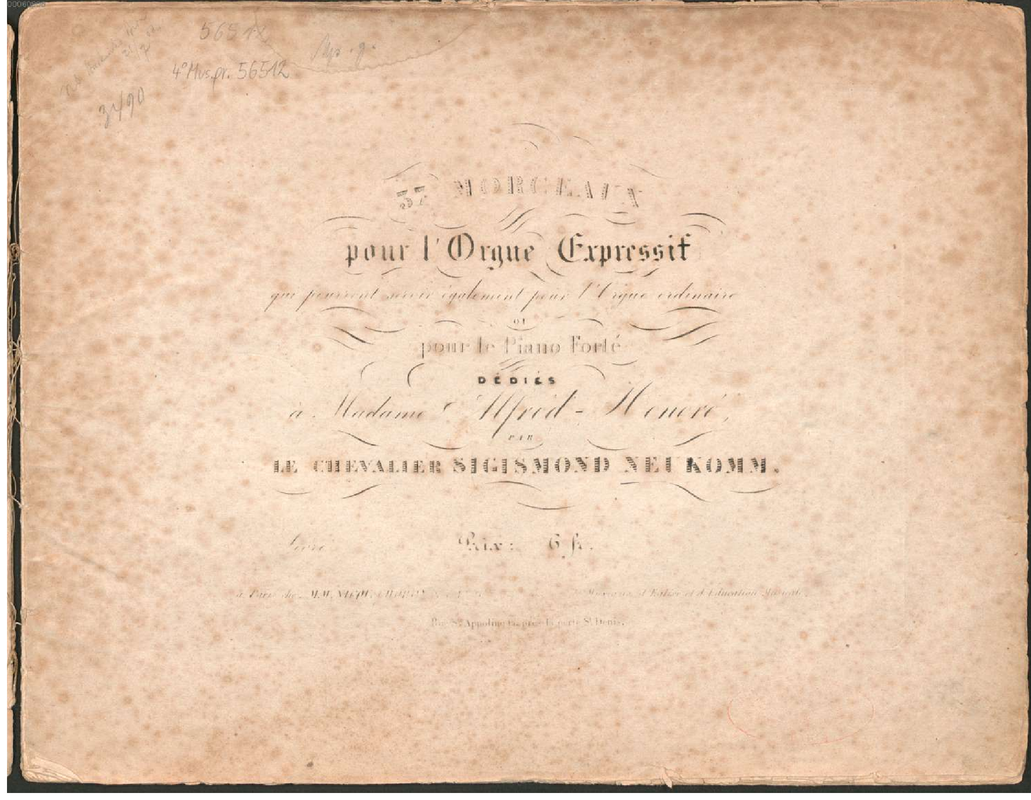 5651x
4º Mus.pr. 56512
3490
MORCEAUX
pour l'Orgue Expressif
qui pourront servir également pour l'Orgue ordinaire
OU
pour le Piano Forté
DÉDIÉS
à Madame Alfred-
PAR
LE CHEVALIER SIGISMOND NEUKOMM.
Prix: 6 fr.
à Paris chez M.M. et d'Education
Rue Ste porte St Denis.